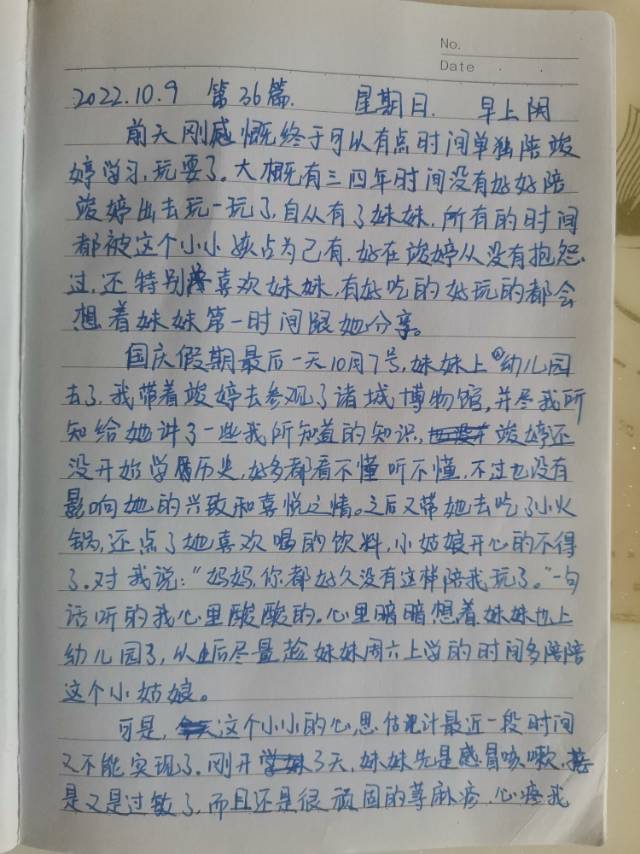 No.
Date
2022.10.9 第36篇. 星期日. 早上阴
前天刚感慨终于可以有点时间单独陪竣
婷学习,玩耍了。大概有三四年时间没有好好陪
竣婷出去玩一玩了,自从有了妹妹,所有的时间
都被这个小小孩占为己有,好在竣婷从没有抱怨
过,还特别喜欢妹妹,有好吃的好玩的都会
想着妹妹第一时间跟她分享。
国庆假期最后一天10月7号,妹妹上幼儿园
去了,我带着竣婷去参观了诸城博物馆,并尽我所
知给她讲了一些我所知道的知识,竣婷还
没开始学历史,好多都看不懂听不懂,不过也没有
影响她的兴致和喜悦之情。之后又带她去吃了小火
锅,还点了她喜欢喝的饮料,小姑娘开心的不得
了。对我说:“妈妈,你都好久没有这样陪我玩了。”一句
话听的我心里酸酸的。心里暗暗想着妹妹也上
幼儿园了,从后尽量趁妹妹周六上学的时间多陪陪
这个小姑娘。
可是,这个小小的心思估计最近一段时间
又不能实现了。刚开学3天,妹妹先是感冒咳嗽,接
是又是过敏了,而且还是很顽固的荨麻疹,心疼我